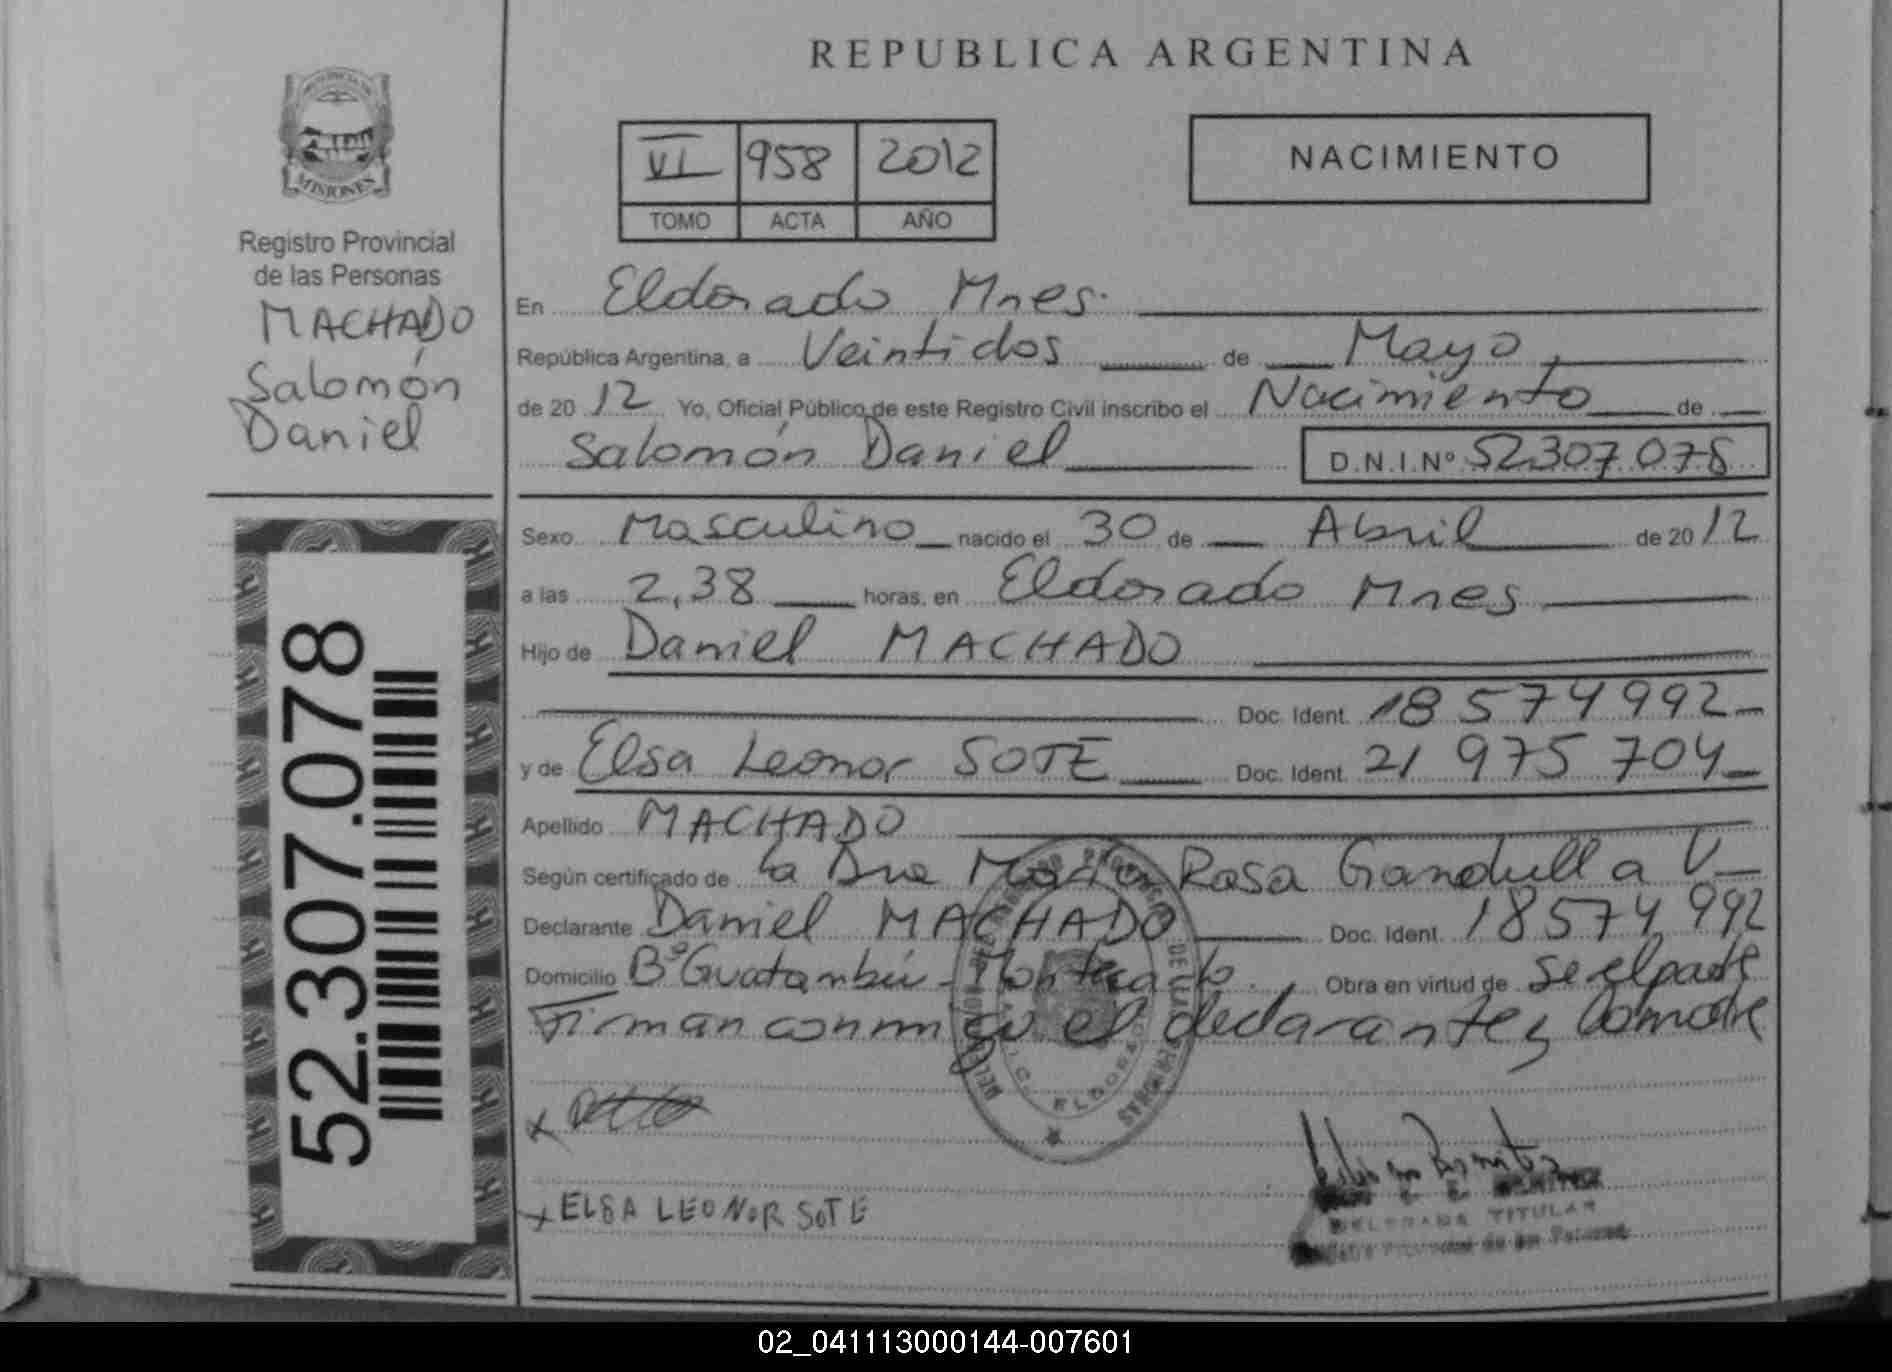 REPUBLICA ARGENTINA
VI 958 2012
TOMO ACTA AÑO
NACIMIENTO
MISIONES
Registro Provincial
de las Personas
MACHADO
Salomón
Daniel
52.307.078
En Eldorado Mnes.
República Argentina, a Veintidos de Mayo,
de 2012 Yo, Oficial Público de este Registro Civil inscribo el Nacimiento de
Salomón Daniel D.N.I.Nº 52.307.078
Sexo Masculino nacido el 30 de Abril de 2012
a las 2,38 horas, en Eldorado Mnes
Hijo de Daniel MACHADO
Doc. Ident. 18 574 992
y de Elsa Leonor SOTE Doc. Ident. 21 975 704
Apellido MACHADO
Según certificado de la Dra María Rosa Gandulla V
Declarante Daniel MACHADO Doc. Ident. 18 574 992
Domicilio Bº Guatambú - Montecarlo. Obra en virtud de Ser el padre
Firman conmigo el declarante y la madre
x
x ELSA LEONOR SOTE
DELEGADA TITULAR
Registro Provincial de las Personas
02_041113000144-007601